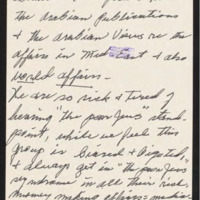 the Arabian Publications
& the Arabian Views re the
affairs in Mid East & also
world affairs.
We are so sick & tired of
hearing "the poor Jews" stand-
point, while we feel this
group is Biased & Bigoted,
& always get in "the poor Jews
syndrome in all their
money making affairs - media